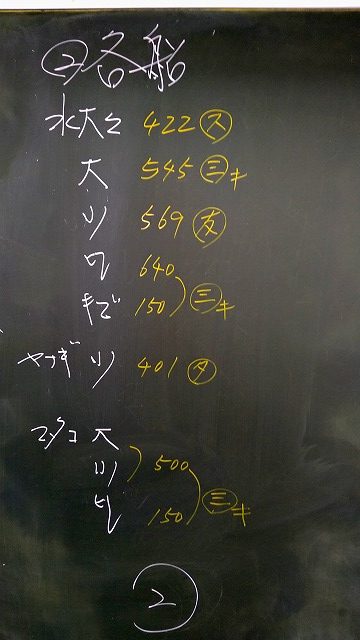 ②各船
水大々 422 ㋜
大 545 ㊂キ
小 569 友
ワ 640
キズ 150 ㊂キ
ヤナギ 小 401 ㋟
マダコ 大
小 500
150 ㊂キ
②